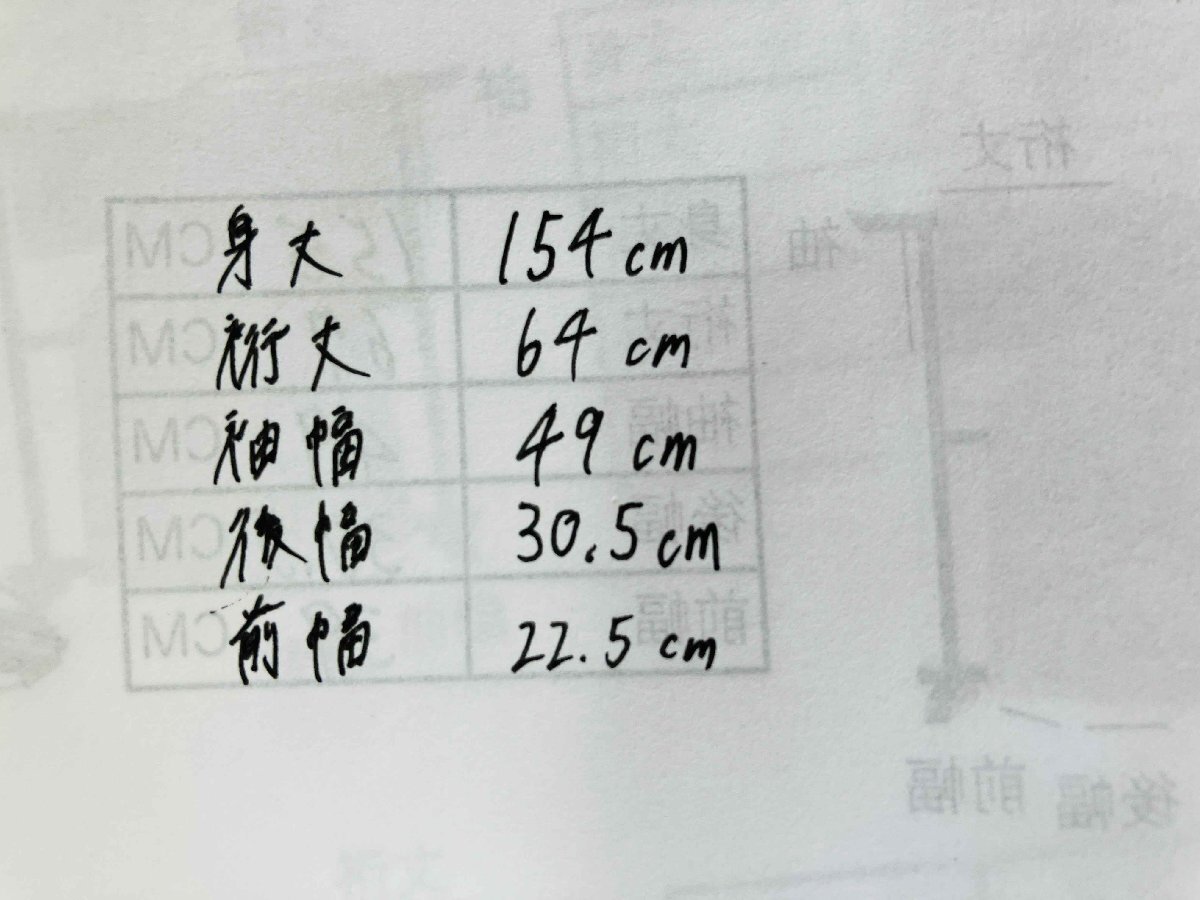 身丈 154cm
裄丈 64cm
袖幅 49cm
後幅 30.5cm
前幅 22.5cm